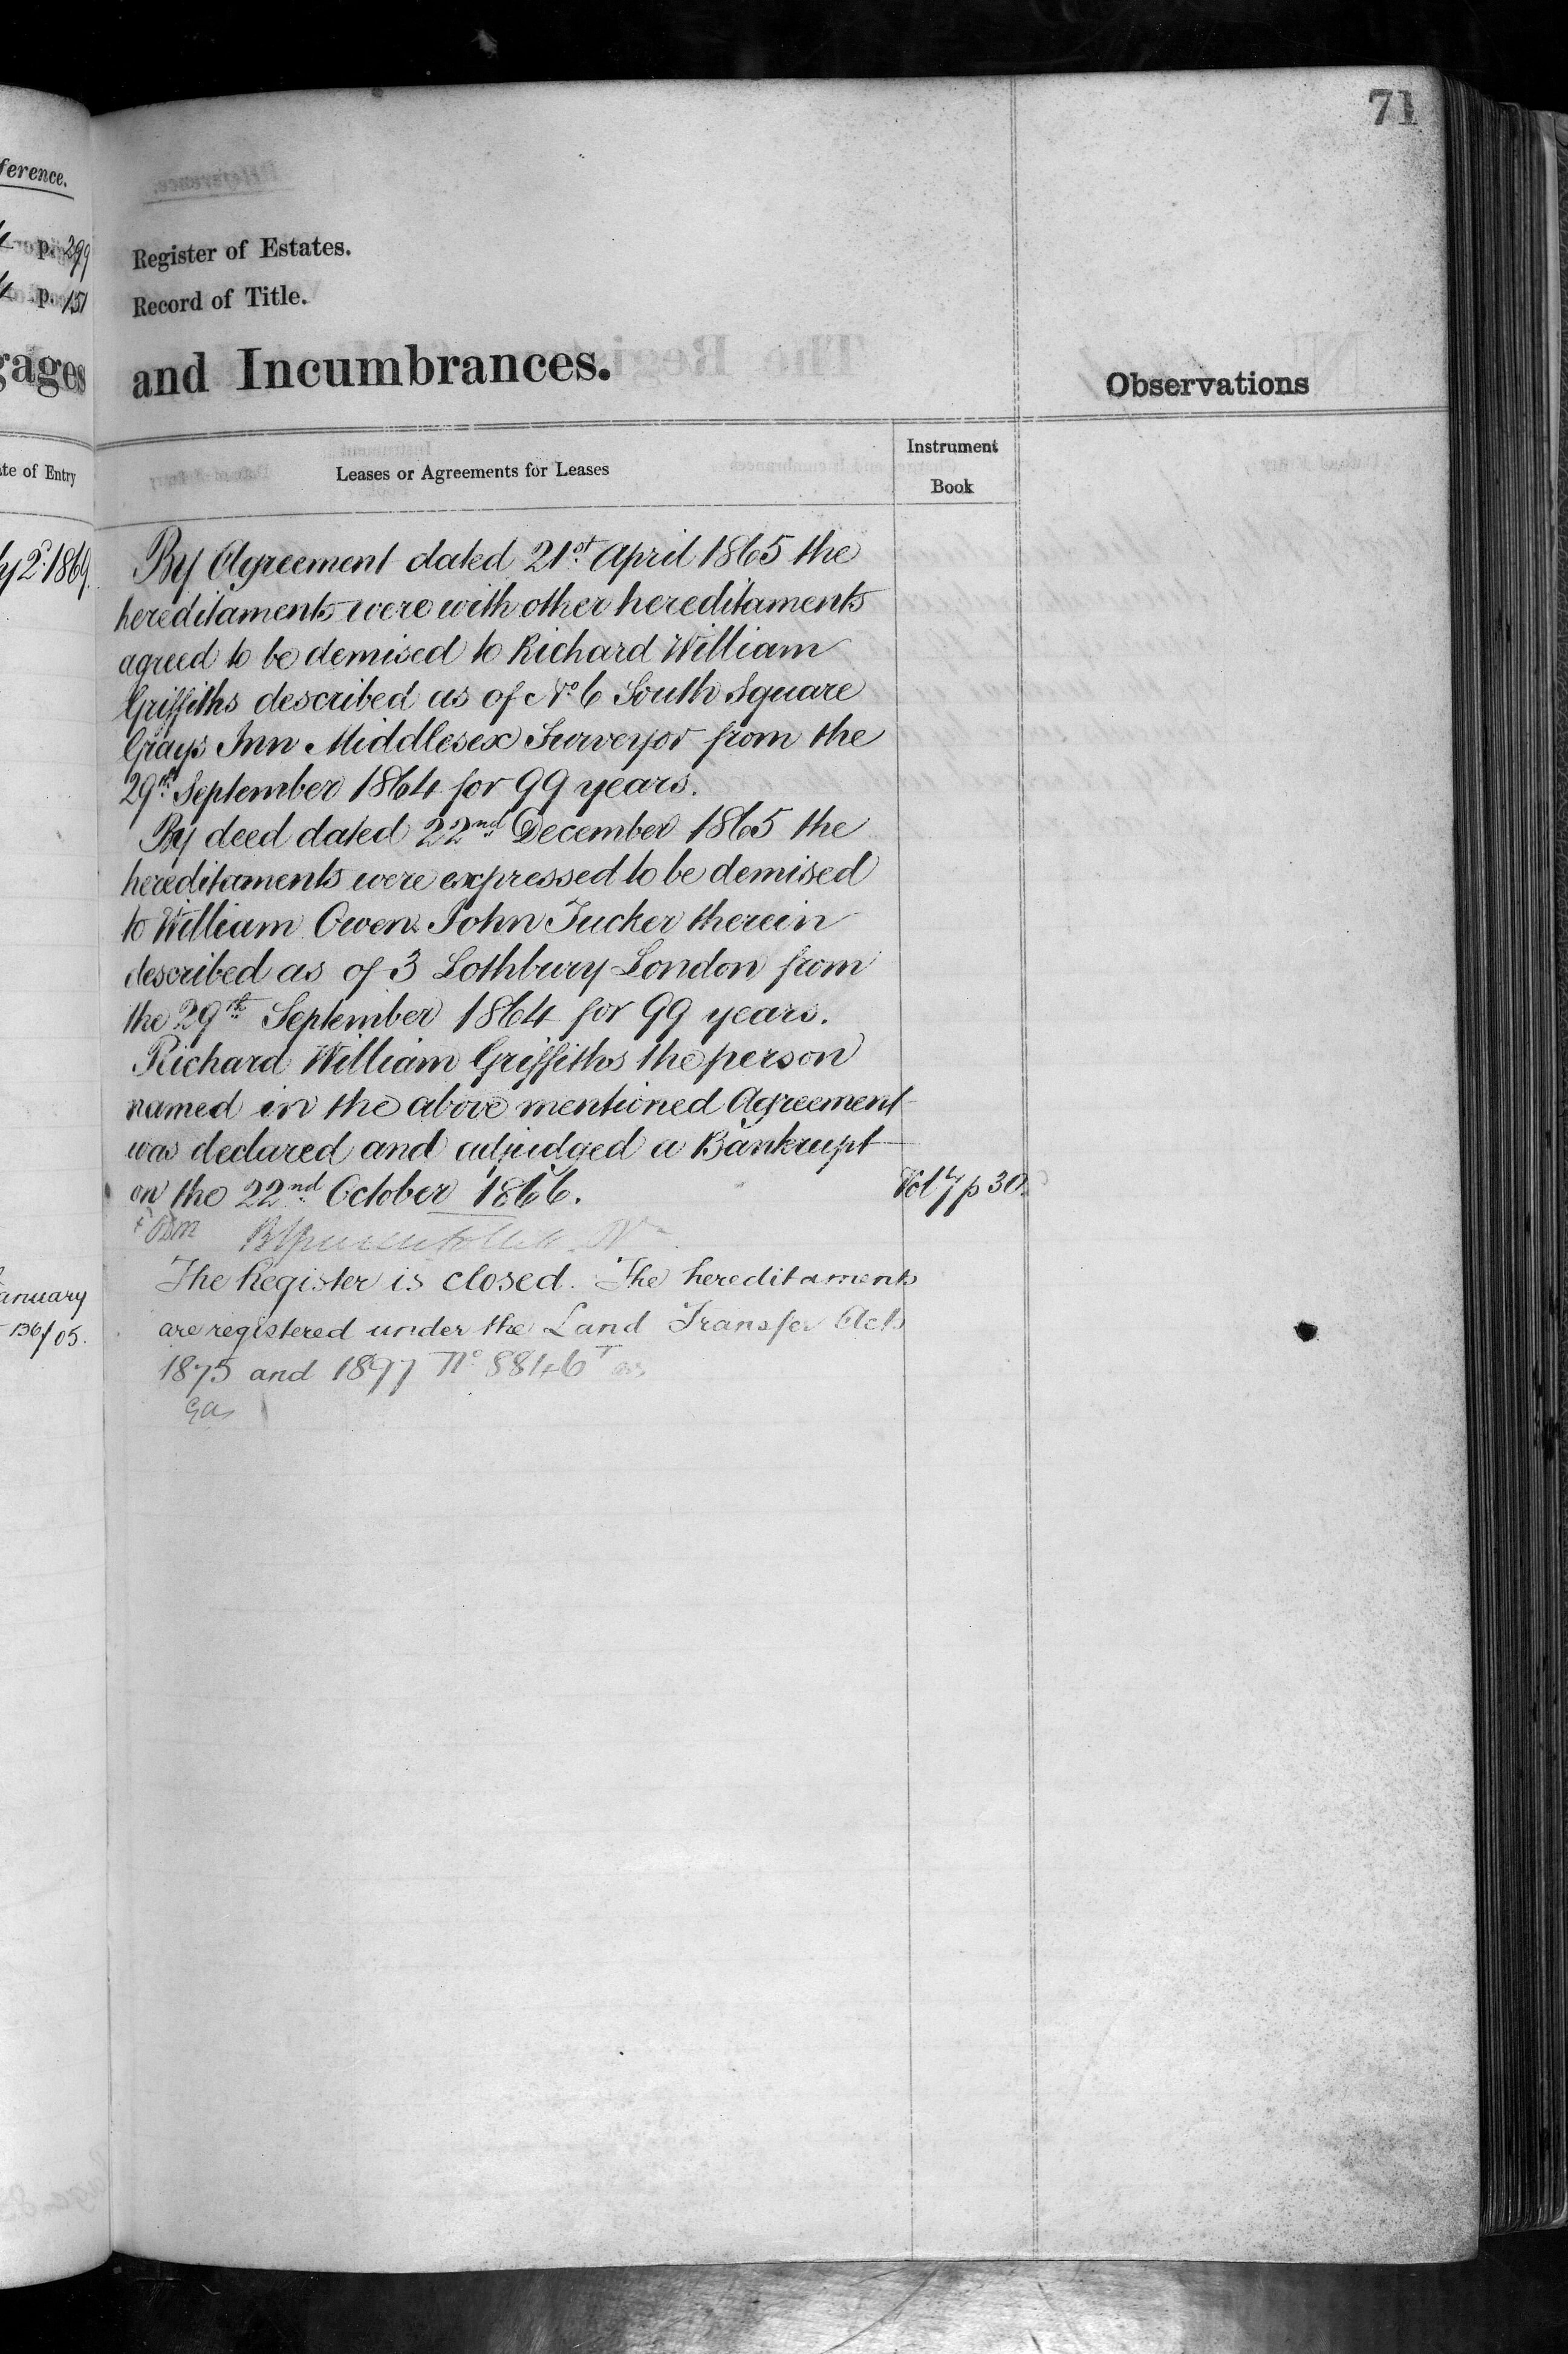 71
ference.
p. 299
p. 151
gages
ate of Entry
y 2d 1869.
anuary
136/05.
Register of Estates.
Record of Title.
and Incumbrances.
Observations
Leases or Agreements for Leases
Instrument
Book
By Agreement dated 21st April 1865 the
hereditaments were with other hereditaments
agreed to be demised to Richard William
Griffiths described as of No 6 South Square
Grays Inn Middlesex Surveyor from the
29th September 1864 for 99 years.
By deed dated 22nd December 1865 the
hereditaments were expressed to be demised
to William Owen John Tucker therein
described as of 3 Lothbury London from
the 29th September 1864 for 99 years.
Richard William Griffiths the person
named in the above mentioned Agreement
was declared and adjudged a Bankrupt
on the 22nd October 1866.
Vol 7 p 30.
The Register is closed. The hereditaments
are registered under the Land Transfer Acts
1875 and 1897 No 88146